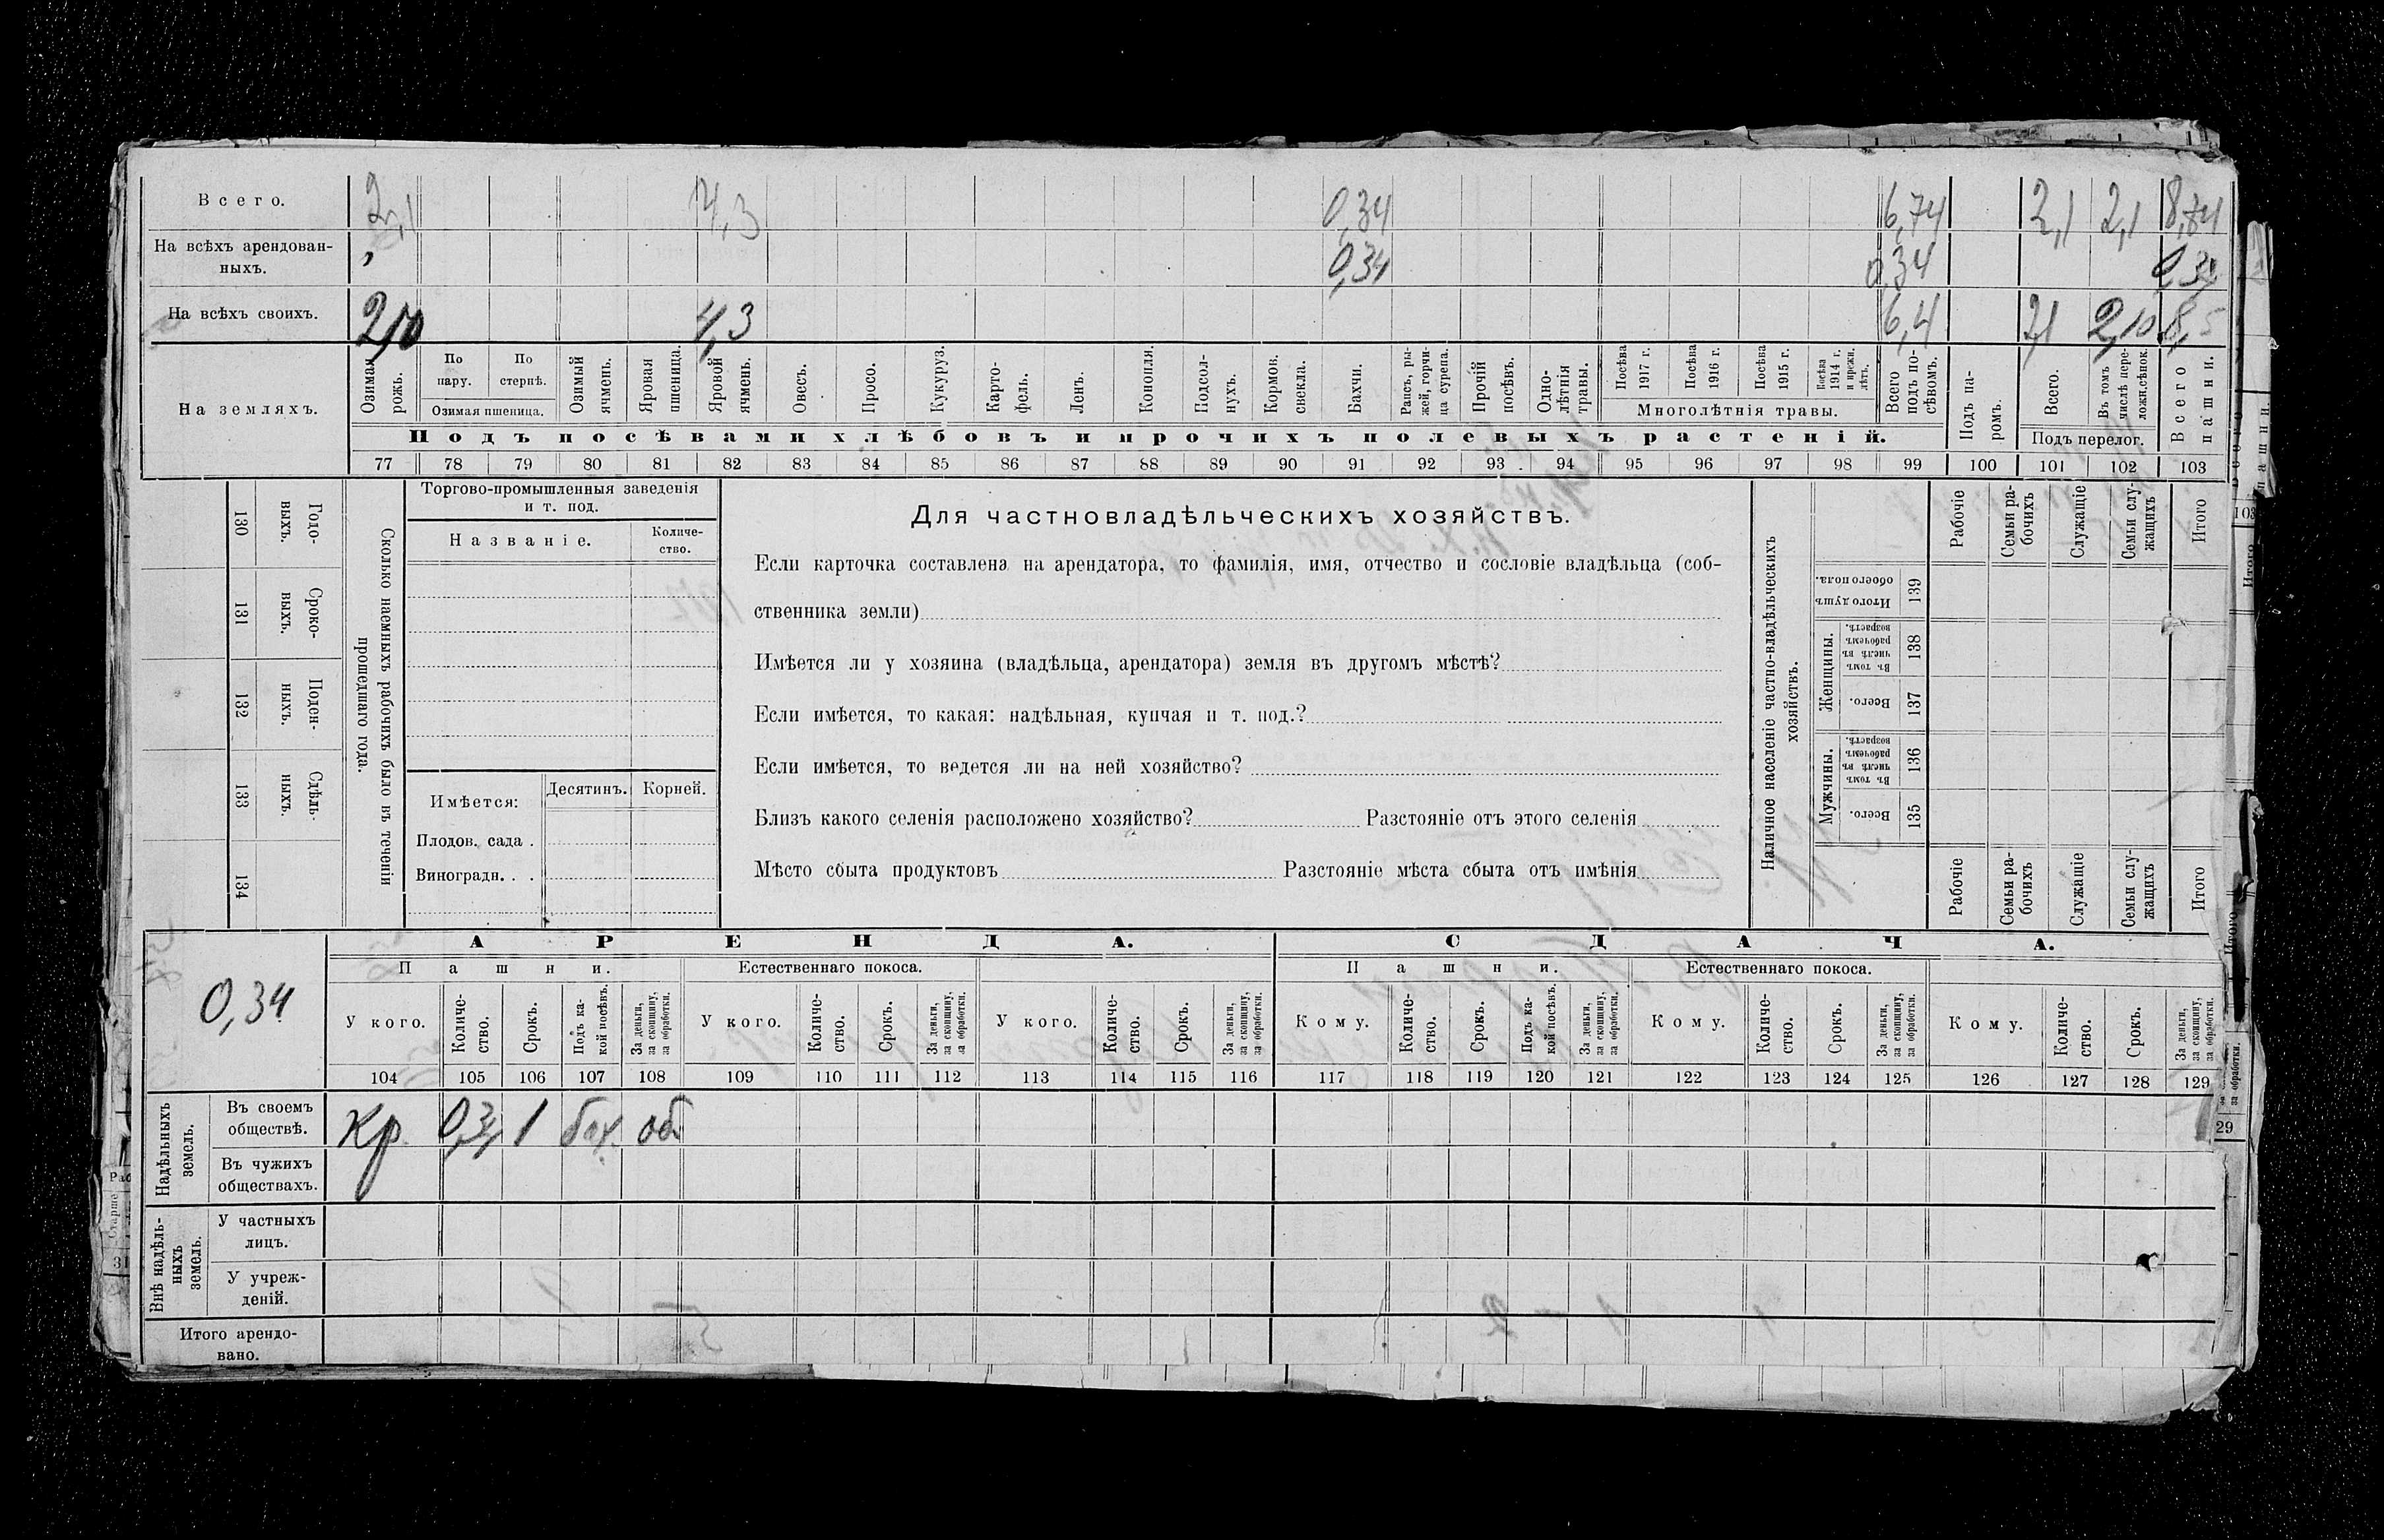 Всего. 2,1 4,3 0,34 6,74 2,1 2,1 8,84
На всѣхъ арендован-
ныхъ. , 0,34 0,34 0,34
На всѣхъ своихъ. 2,10 4,3 6,4 2,1 2,10 8,5
На земляхъ.
Озимая
рожь.
По
пару.
По
стернѣ.
Озимая пшеница.
Озимый
ячмень.
Яровая
пшеница.
Яровой
ячмень.
Овесъ.
Просо.
Кукуруз.
Карто-
фель.
Ленъ.
Конопля.
Подсол-
нухъ.
Кормов.
свекла.
Бахчи.
Рапсъ, ры-
жей, горчи-
ца сурепа.
Прочій
посѣвъ.
Одно-
лѣтнія
травы.
Посѣва
1917 г.
Посѣва
1916 г.
Посѣва
1915 г.
Посѣва
1914 г.
и прежн.
лѣтъ.
Многолѣтнія травы.
Всего
подъ по-
сѣвомъ.
Подъ па-
ромъ.
Всего.
Въ томъ
числѣ пере-
ложн.сѣнок.
Подъ перелог.
Всего
пашни.
Подъ посѣвами хлѣбовъ и прочихъ полевыхъ растеній.
77 78 79 80 81 82 83 84 85 86 87 88 89 90 91 92 93 94 95 96 97 98 99 100 101 102 103
130
Годо-
выхъ.
131
Сроко-
выхъ.
132
Поден-
ныхъ.
133
Сдѣль-
ныхъ.
134
Сколько наемныхъ рабочихъ было въ теченіи
прошедшаго года.
Торгово-промышленныя заведенія
и т. под.
Названіе.
Количе-
ство.
Имѣется: Десятинъ. Корней.
Плодов. сада .
Виноградн. . .
Для частновладѣльческихъ хозяйствъ.
Если карточка составлена на арендатора, то фамилія, имя, отчество и сословіе владѣльца (соб-
ственника земли)
Имѣется ли у хозяина (владѣльца, арендатора) земля въ другомъ мѣстѣ?
Если имѣется, то какая: надѣльная, купчая и т. под.?
Если имѣется, то ведется ли на ней хозяйство?
Близъ какого селенія расположено хозяйство? Разстояніе отъ этого селенія
Мѣсто сбыта продуктовъ Разстояніе мѣста сбыта отъ имѣнія
Наличное населеніе частно-владѣльческихъ
хозяйствъ.
Рабочіе
Семьи ра-
бочихъ
Служащіе
Семьи слу-
жащихъ
Итого
Итого душъ
обоего пола.
139
Женщины.
Въ томъ
числѣ въ
рабочемъ
возрастѣ.
138
Всего.
137
Мужчины.
Въ томъ
числѣ въ
рабочемъ
возрастѣ.
136
Всего.
135
Рабочіе
Семьи ра-
бочихъ
Служащіе
Семьи слу-
жащихъ
Итого
0,34
АРЕНДА. СДАЧА.
Пашни. Естественнаго покоса. Пашни. Естественнаго покоса.
У кого.
Количе-
ство.
Срокъ.
Подъ ка-
кой посѣвъ.
За деньги,
за скопщину,
за обработки.
У кого.
Количе-
ство.
Срокъ.
За деньги,
за скопщину,
за обработки.
У кого.
Количе-
ство.
Срокъ.
За деньги,
за скопщину,
за обработки.
Кому.
Количе-
ство.
Срокъ.
Подъ ка-
кой посѣвъ.
За деньги,
за скопщину,
за обработки.
Кому.
Количе-
ство.
Срокъ.
За деньги,
за скопщину,
за обработки.
Кому.
Количе-
ство.
Срокъ.
За деньги,
за скопщину,
за обработки.
104 105 106 107 108 109 110 111 112 113 114 115 116 117 118 119 120 121 122 123 124 125 126 127 128 129
Надѣльныхъ
земель.
Въ своемъ
обществѣ. Кр. 0,34 1 бах. об.
Въ чужихъ
обществахъ.
Внѣ надѣль-
ныхъ
земель.
У частныхъ
лицъ.
У учреж-
деній.
Итого арендо-
вано.